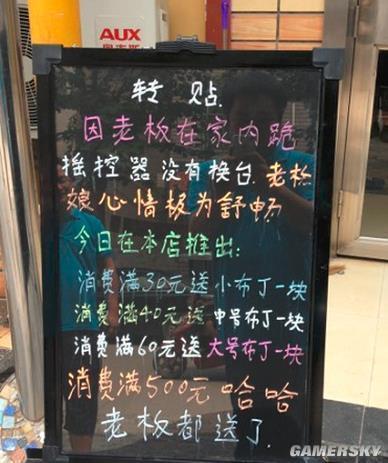 AUX
奥克斯
转贴
因老板在家内跪
摇控器没有换台.老板
娘心情极为舒畅
今日在本店推出:
消费满30元送小布丁一块
消费满40元送中号布丁一块
消费满60元送大号布丁一块
消费满500元哈哈
老板都送了
GAMERSKY